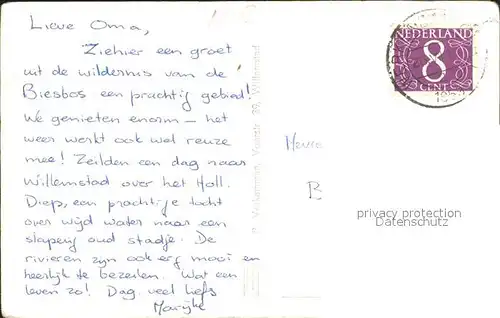 Lieve Oma,
Ziehier een groet
uit de wildernis van de
Biesbos een prachtig gebied!
We genieten enorm – het
weer werkt ook wel reuze
mee! Zeilden een dag naar
Willemstad over het Holl.
Diep, een prachtige tocht
over wijd water naar een
slaperig oud stadje. De
rivieren zijn ook erg mooi en
heerlijk te bezeilen. Wat een
leven zo! Dag, veel liefs
Marijke
NEDERLAND
8
CENT
B
privacy protection
Datenschutz
39, Willemstad